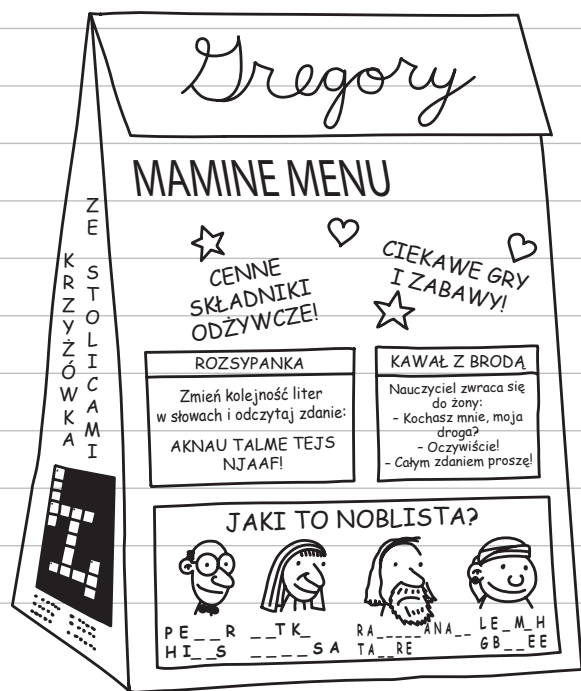 Gregory
MAMINE MENU
CENNE
SKŁADNIKI
ODŻYWCZE!
CIEKAWE GRY
I ZABAWY!
KRZYŻÓWKA
ZE STOLICAMI
ROZSYPANKA
Zmień kolejność liter
w słowach i odczytaj zdanie:
AKNAU TALME TEJS
NJAAF!
KAWAŁ Z BRODĄ
Nauczyciel zwraca się
do żony:
– Kochasz mnie, moja
droga?
– Oczywiście!
– Całym zdaniem proszę!
JAKI TO NOBLISTA?
PE__R
HI__S
__TK_
____SA
RA_____ANA__
TA__RE
LE_M_H
GB__EE